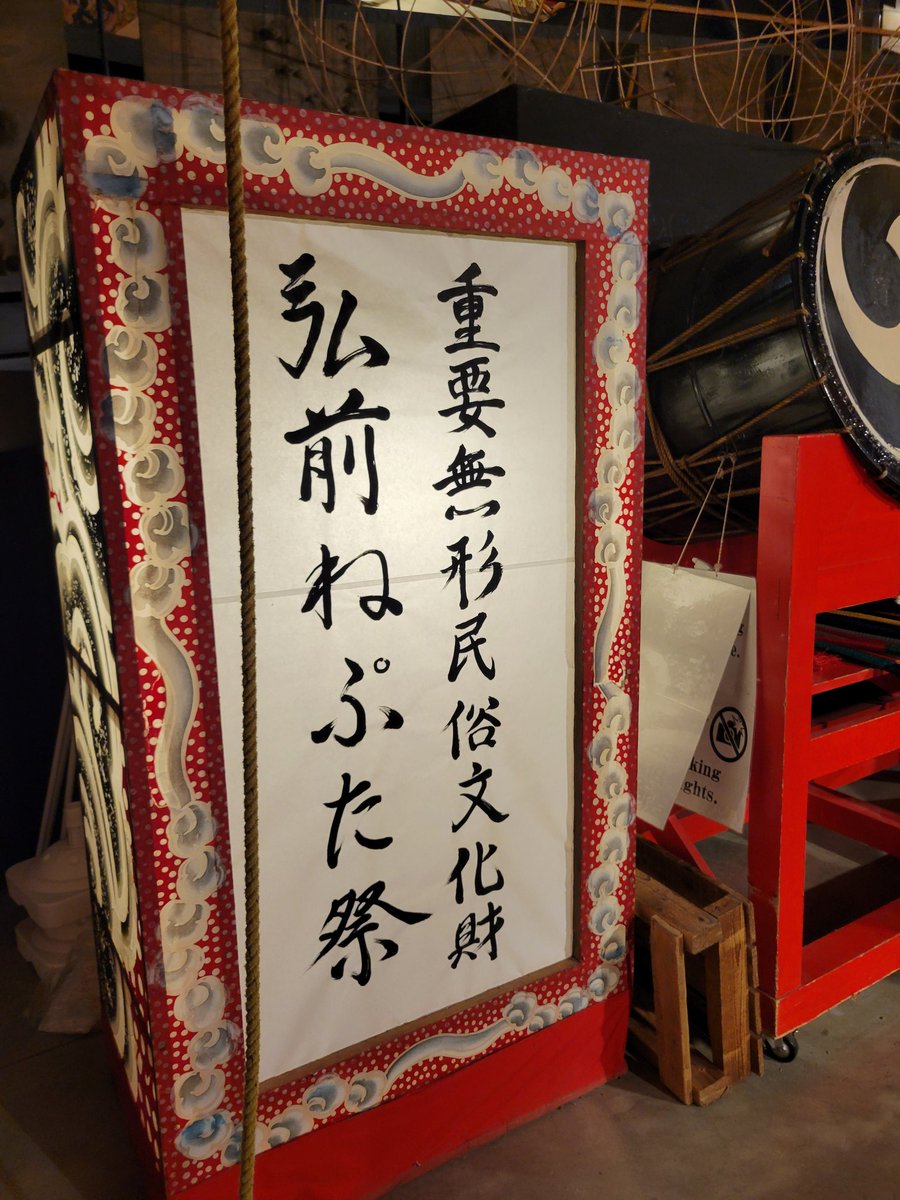 重要無形民俗文化財
弘前ねぷた祭
king
ghts.